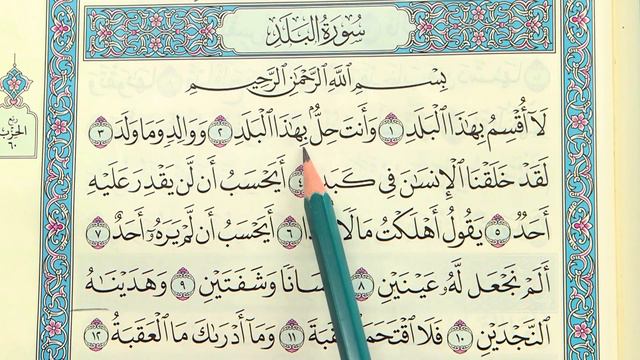 سُورَةُ الْبَلَدِ
بِسْمِ اللَّهِ الرَّحْمَٰنِ الرَّحِيمِ
لَآ أُقْسِمُ بِهَٰذَا ٱلْبَلَدِ ١ وَأَنتَ حِلٌّۢ بِهَٰذَا ٱلْبَلَدِ ٢ وَوَالِدٍ وَمَا وَلَدَ ٣
لَقَدْ خَلَقْنَا ٱلْإِنسَٰنَ فِى كَبَدٍ ٤ أَيَحْسَبُ أَن لَّن يَقْدِرَ عَلَيْهِ
أَحَدٌ ٥ يَقُولُ أَهْلَكْتُ مَالًا ٦ أَيَحْسَبُ أَن لَّمْ يَرَهُۥٓ أَحَدٌ ٧
أَلَمْ نَجْعَل لَّهُۥ عَيْنَيْنِ ٨ وَشَفَتَيْنِ ٩ وَهَدَيْنَٰهُ
ٱلنَّجْدَيْنِ ١٠ فَلَا ٱقْتَحَمَ ٱلْعَقَبَةَ ١١ وَمَآ أَدْرَىٰكَ مَا ٱلْعَقَبَةُ ١٢
ربع
الحزب
٦٠